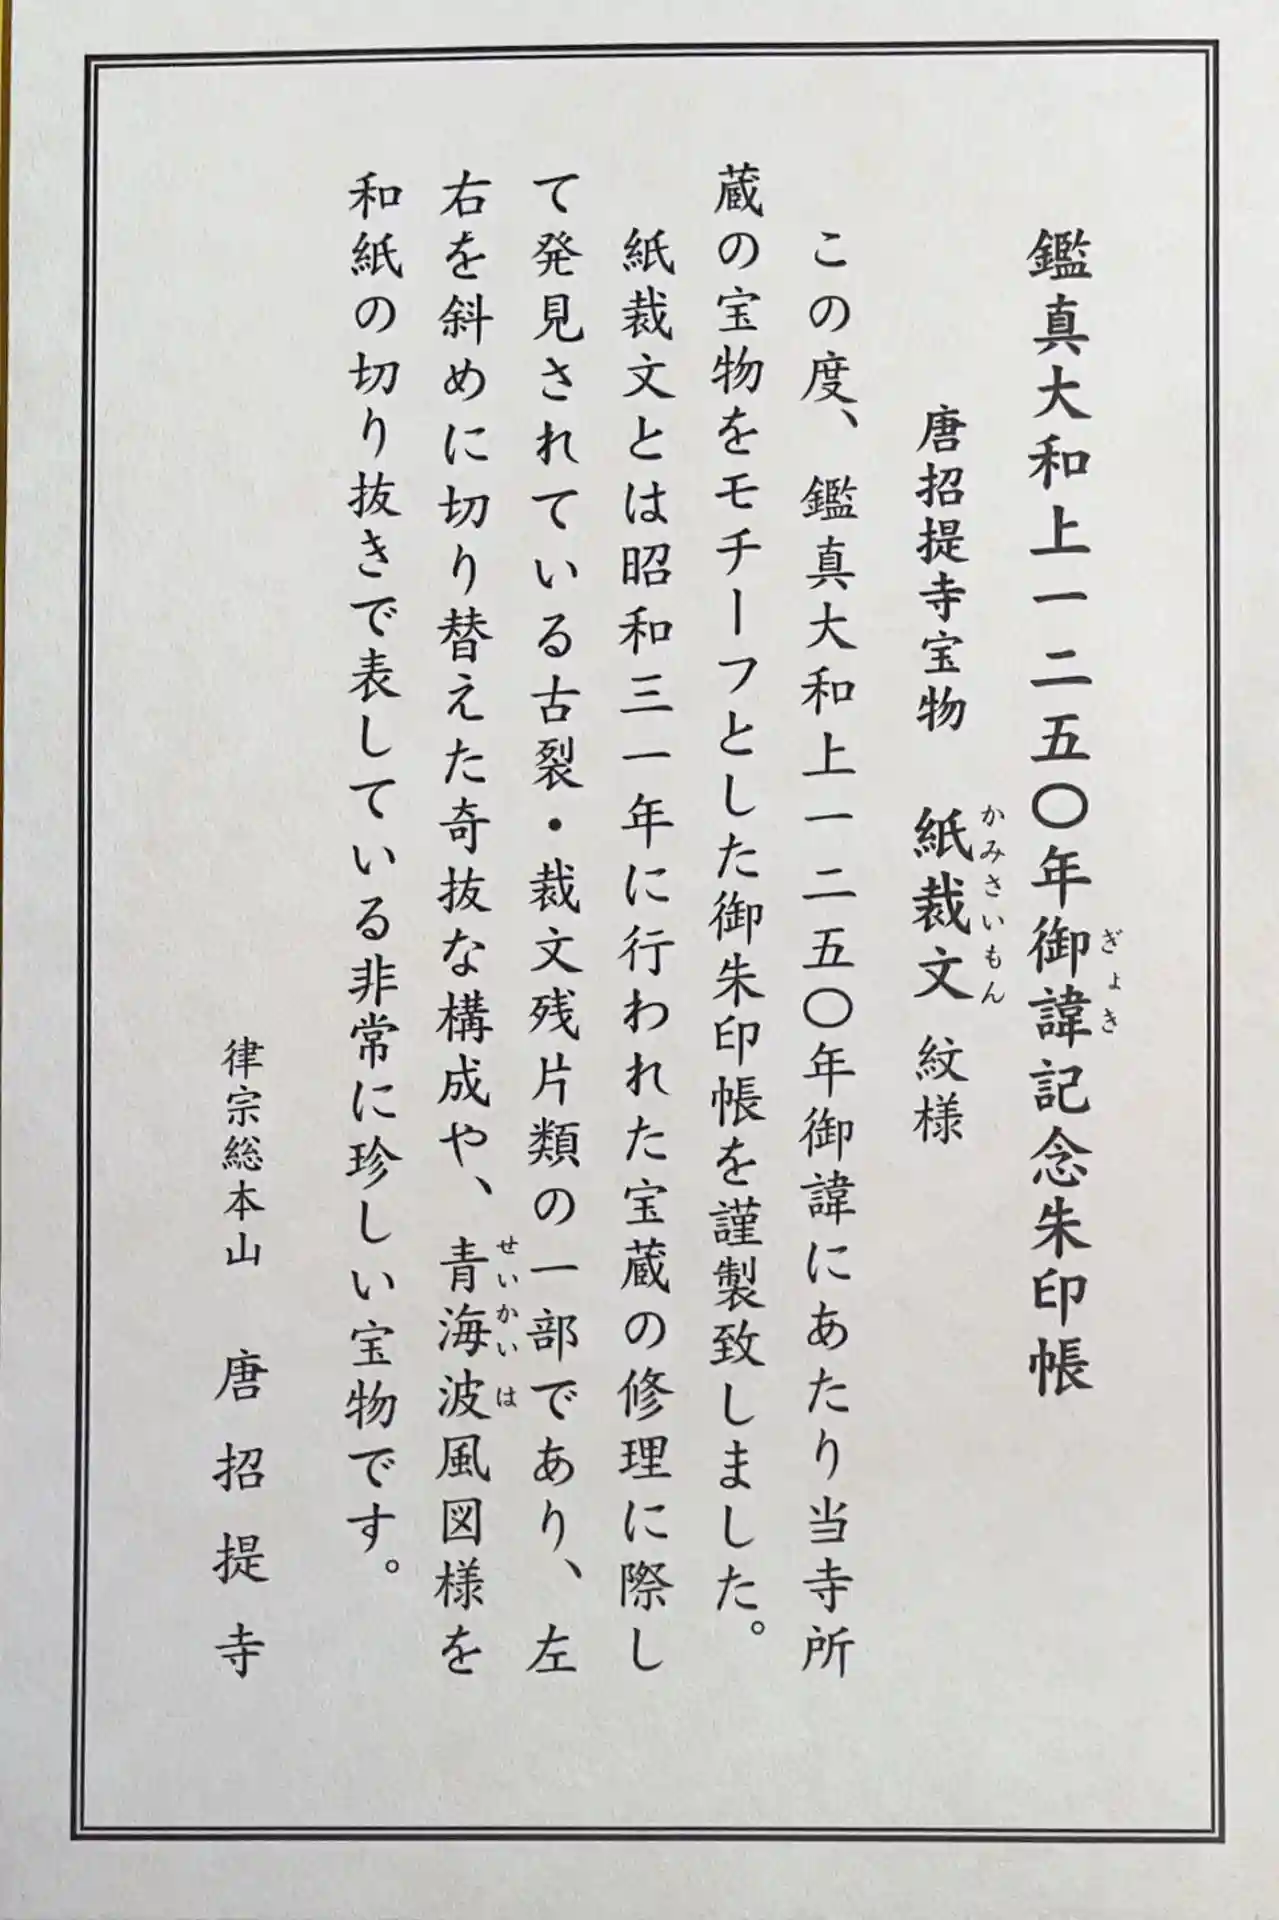 鑑真大和上一二五〇年御諱記念朱印帳
ぎょき
唐招提寺宝物　紙裁文 紋様
かみさいもん
この度、鑑真大和上一二五〇年御諱にあたり当寺所
蔵の宝物をモチーフとした御朱印帳を謹製致しました。
紙裁文とは昭和三一年に行われた宝蔵の修理に際し
て発見されている古裂・裁文残片類の一部であり、左
右を斜めに切り替えた奇抜な構成や、青海波風図様を
せいかいは
和紙の切り抜きで表している非常に珍しい宝物です。
律宗総本山　唐招提寺